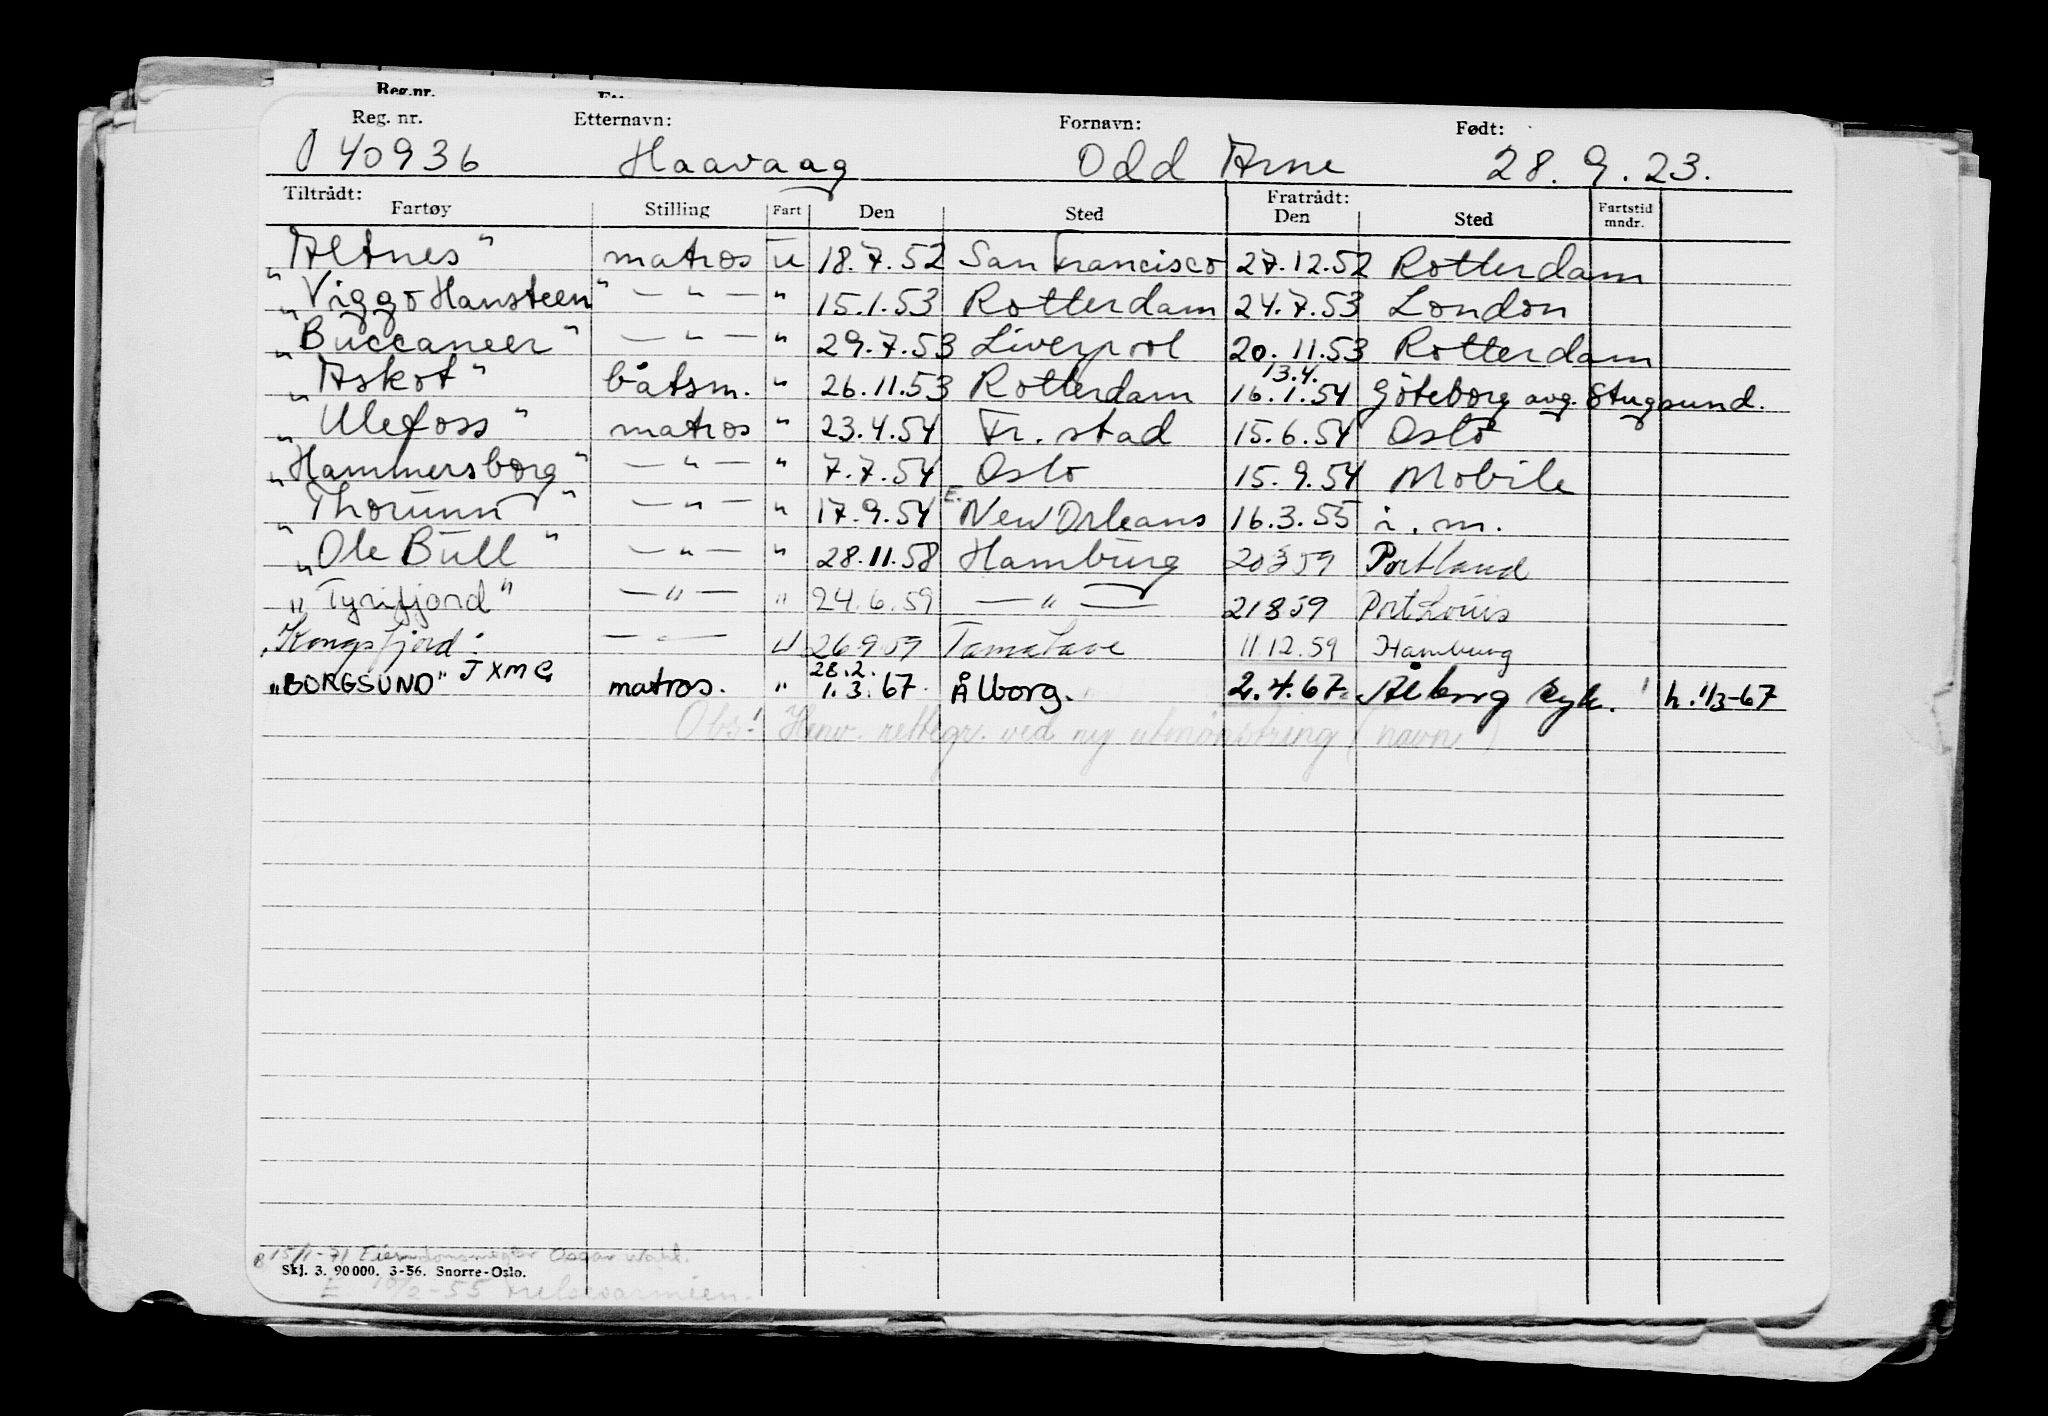 Reg.nr.
Reg. nr. Etternavn: Fornavn: Født:
040936 Haavaag Odd Arne 28.9.23.
Tiltrådt: Fratrådt:
Fartøy Stilling Fart Den Sted Den Sted Fartstid mndr.
"Altnes" matros u 18.7.52 San Francisco 27.12.52 Rotterdam
"Viggo Hansteen" — " — " 15.1.53 Rotterdam 24.7.53 London
"Buccaneer" — " — " 29.7.53 Liverpool 20.11.53 Rotterdam
13.4.
"Askot" båtsm. " 26.11.53 Rotterdam 16.1.54 Göteborg avg. Stugsund.
"Ulefoss" matros " 23.4.54 Fr. stad 15.6.54 Oslo
"Hammersborg" — " — " 7.7.54 Oslo 15.9.54 Mobile
"Thorunn" — " — " 17.9.54 E. New Orleans 16.3.55 i. m.
"Ole Bull" — " — " 28.11.58 Hamburg 20 3 59 Portland
"Tyrifjord" — " — " 24.6.59 — " — 21 8 59 Port Louis
"Kongsfjord" — " — U 26 9 59 Tamatave 11 12.59 Hamburg
28.2.
"BORGSUND" JXMC matros. " 1.3.67. Ålborg. 2.4.67. Ålborg syk. h. 1/3-67
Obs! Henv. rettegr. ved ny utmønstring (navn)
15/1-71 Eiendomsmegler Oscar Wahl.
Skj. 3. 90000. 3-56. Snorre-Oslo.
E 10/2-55 Frelsesarmeen.